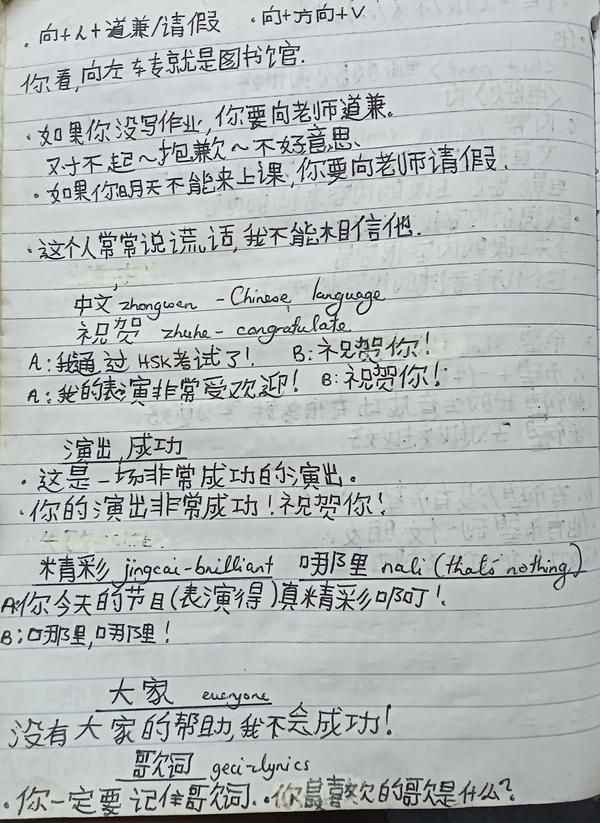 ·向+人+道歉/请假  ·向+方向+V
你看,向左转就是图书馆.
·如果你没写作业,你要向老师道歉。
对不起~抱歉~不好意思、
·如果你明天不能来上课,你要向老师请假.
·这个人常常说谎话,我不能相信他.
中文 zhongwen - Chinese language
祝贺 zhuhe - congratulate
A:我通过HSK考试了! B:祝贺你!
A:我的表演非常受欢迎! B:祝贺你!
演出,成功
·这是一场非常成功的演出。
·你的演出非常成功!祝贺你!
精彩 jingcai-brilliant 哪里 nali (that's nothing)
A:你今天的节目(表演得)真精彩啊!
B:哪里,哪里!
大家 everyone
没有大家的帮助,我不会成功!
歌词 geci-lyrics
·你一定要记住歌词. ·你最喜欢的歌是什么?